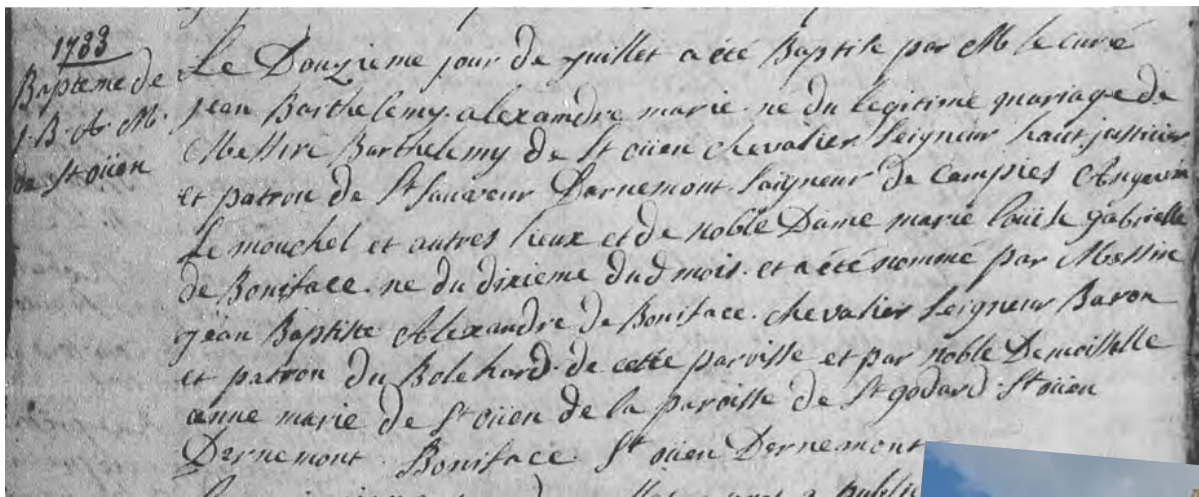 1733
Bapteme de
J. B. A. M.
de St oüen
Le Douzieme jour de juillet a été Baptisé par M le curé
jean Barthelemy. alexandre marie. ne du legitime mariage de
Messire Barthelemy de St oüen chevalier seigneur haut justicier
et patron de St Sauveur Darnemont. Seigneur de Campies Angerin
Le mouchel et autres lieux et de noble Dame marie loüise gabrielle
de Boniface. ne du dixieme dud mois. et a été nommé par Messire
jean Baptiste Alexandre de Boniface. chevalier seigneur Baron
et patron du Bolehard. de cette paroisse et par noble Demoiselle
anne marie de St oüen de la paroisse de St godard. St oüen
Dernemont. Boniface. St oüen Dernemont